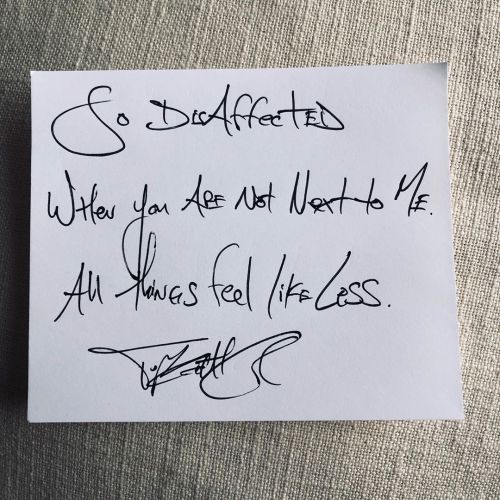 So Disaffected
When you Are Not Next to Me.
All things feel like Less.